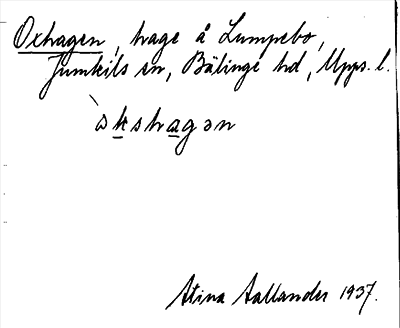 Oxhagen, hage å Lumpebo,
Jumkils sn, Bälinge hd, Upps. l.
`ɷkshagən
Stina Aallander 1937.